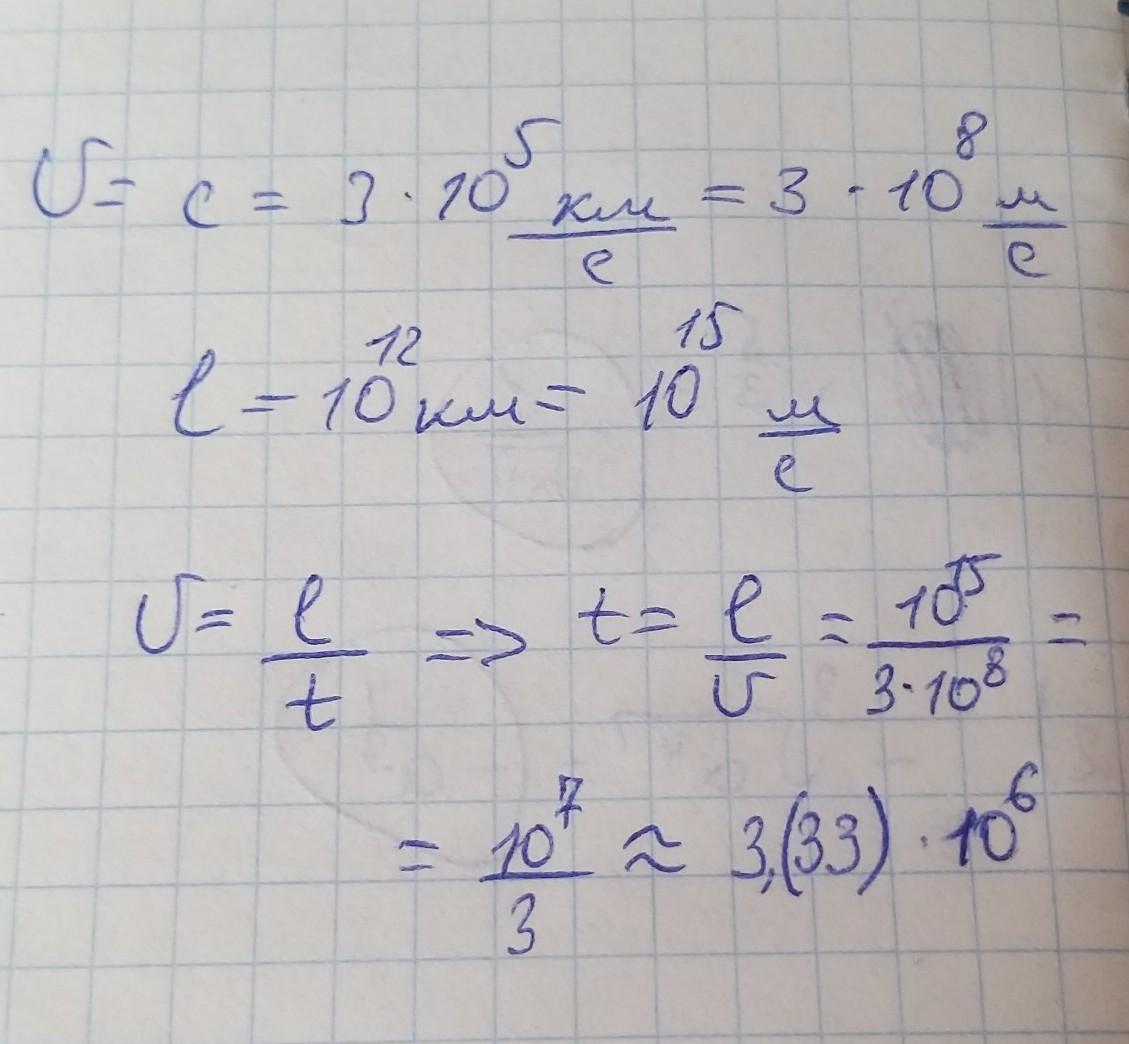 υ = c = 3 · 10⁵ км/с = 3 · 10⁸ м/с
l = 10¹² км = 10¹⁵ м/с
υ = l/t => t = l/υ = 10¹⁵/3·10⁸ =
= 10⁷/3 ≈ 3,(33) · 10⁶